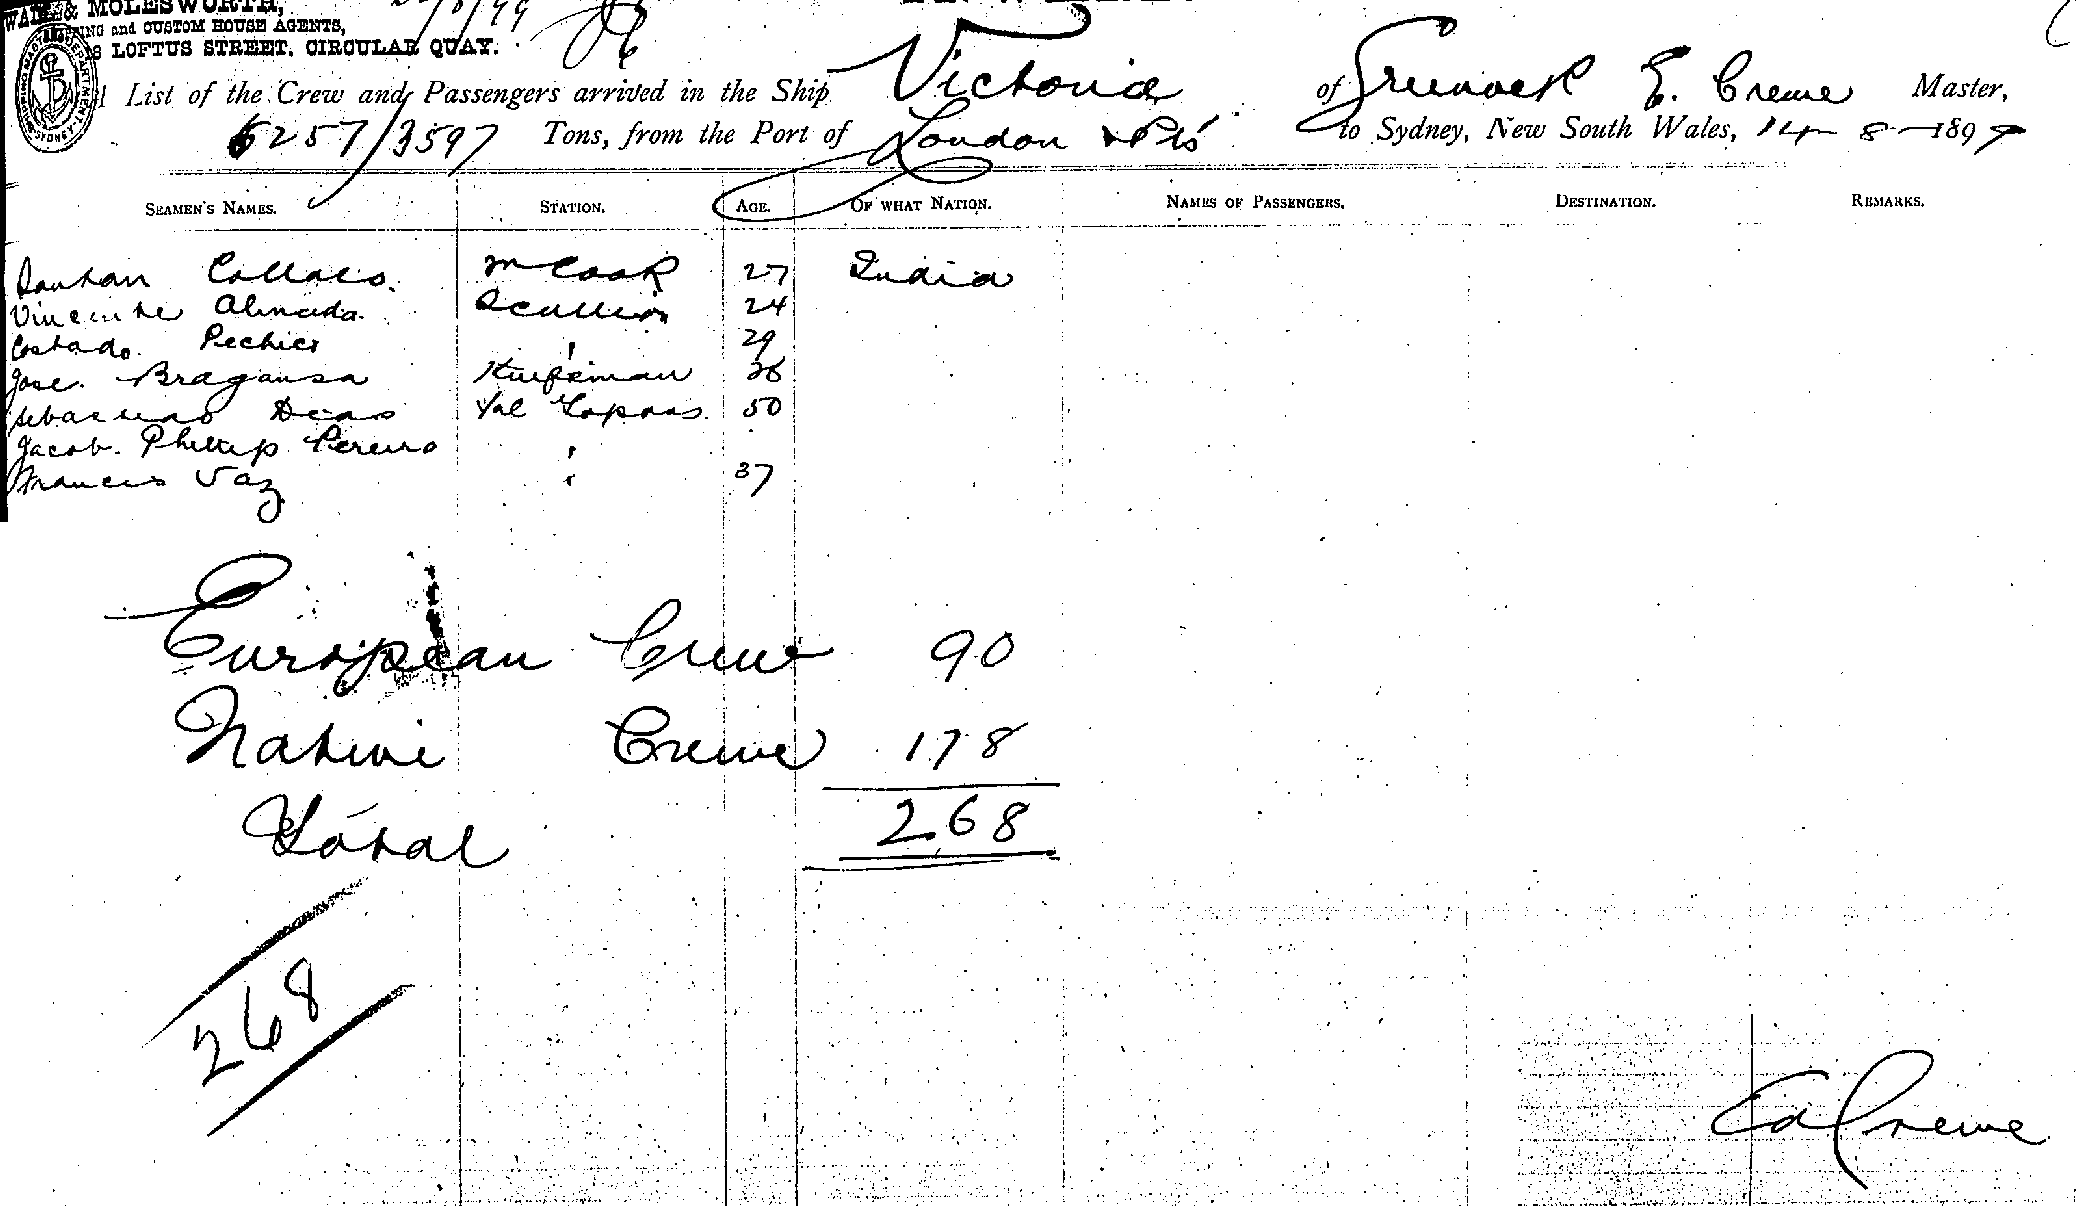 & MOLESWORTH,
SHIPPING and CUSTOM HOUSE AGENTS,
LOFTUS STREET. CIRCULAR QUAY.
List of the Crew and Passengers arrived in the Ship Victoria of Greenock E. Crewe Master,
6257/3597 Tons, from the Port of London & Pts to Sydney, New South Wales, 14 8 1899
SEAMEN'S NAMES. STATION. AGE. OF WHAT NATION. NAMES OF PASSENGERS. DESTINATION. REMARKS.
Collaco. Cook 27 India
Vincente Almeda Scullion 24
Costado 29
Jose. Bragansa Knifeman 36
Dias Topass 50
Jacob. Phillip Pereiro
Francis Vaz 37
European Crew 90
Native Crew 178
Total 268
268
Ed Crewe